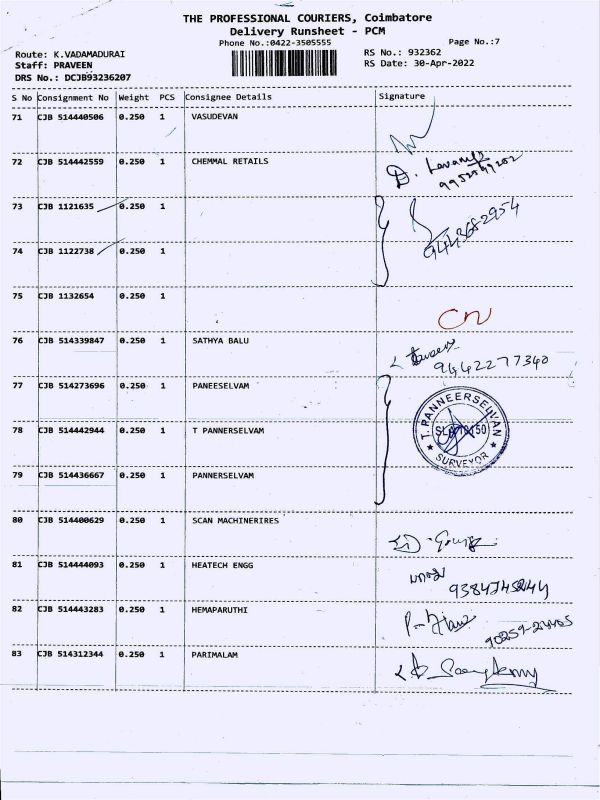 THE PROFESSIONAL COURIERS, Coimbatore
Delivery Runsheet - PCM
Phone No.:0422-3505555
Page No.:7
Route: K.VADAMADURAI
RS No.: 932362
Staff: PRAVEEN
RS Date: 30-Apr-2022
DRS No.: DCJB93236207
S No Consignment No Weight PCS Consignee Details Signature
71 CJB 514440506 0.250 1 VASUDEVAN
72 CJB 514442559 0.250 1 CHEMMAL RETAILS
73 CJB 1121635 0.250 1
9443682954
74 CJB 1122738 0.250 1
75 CJB 1132654 0.250 1
CN
76 CJB 514339847 0.250 1 SATHYA BALU
9442277340
77 CJB 514273696 0.250 1 PANEESELVAM
T. PANNEERSELVAN
78 CJB 514442944 0.250 1 T PANNERSELVAM
SURVEYOR
79 CJB 514436667 0.250 1 PANNERSELVAM
80 CJB 514400629 0.250 1 SCAN MACHINERIRES
81 CJB 514444093 0.250 1 HEATECH ENGG
82 CJB 514443283 0.250 1 HEMAPARUTHI
83 CJB 514312344 0.250 1 PARIMALAM